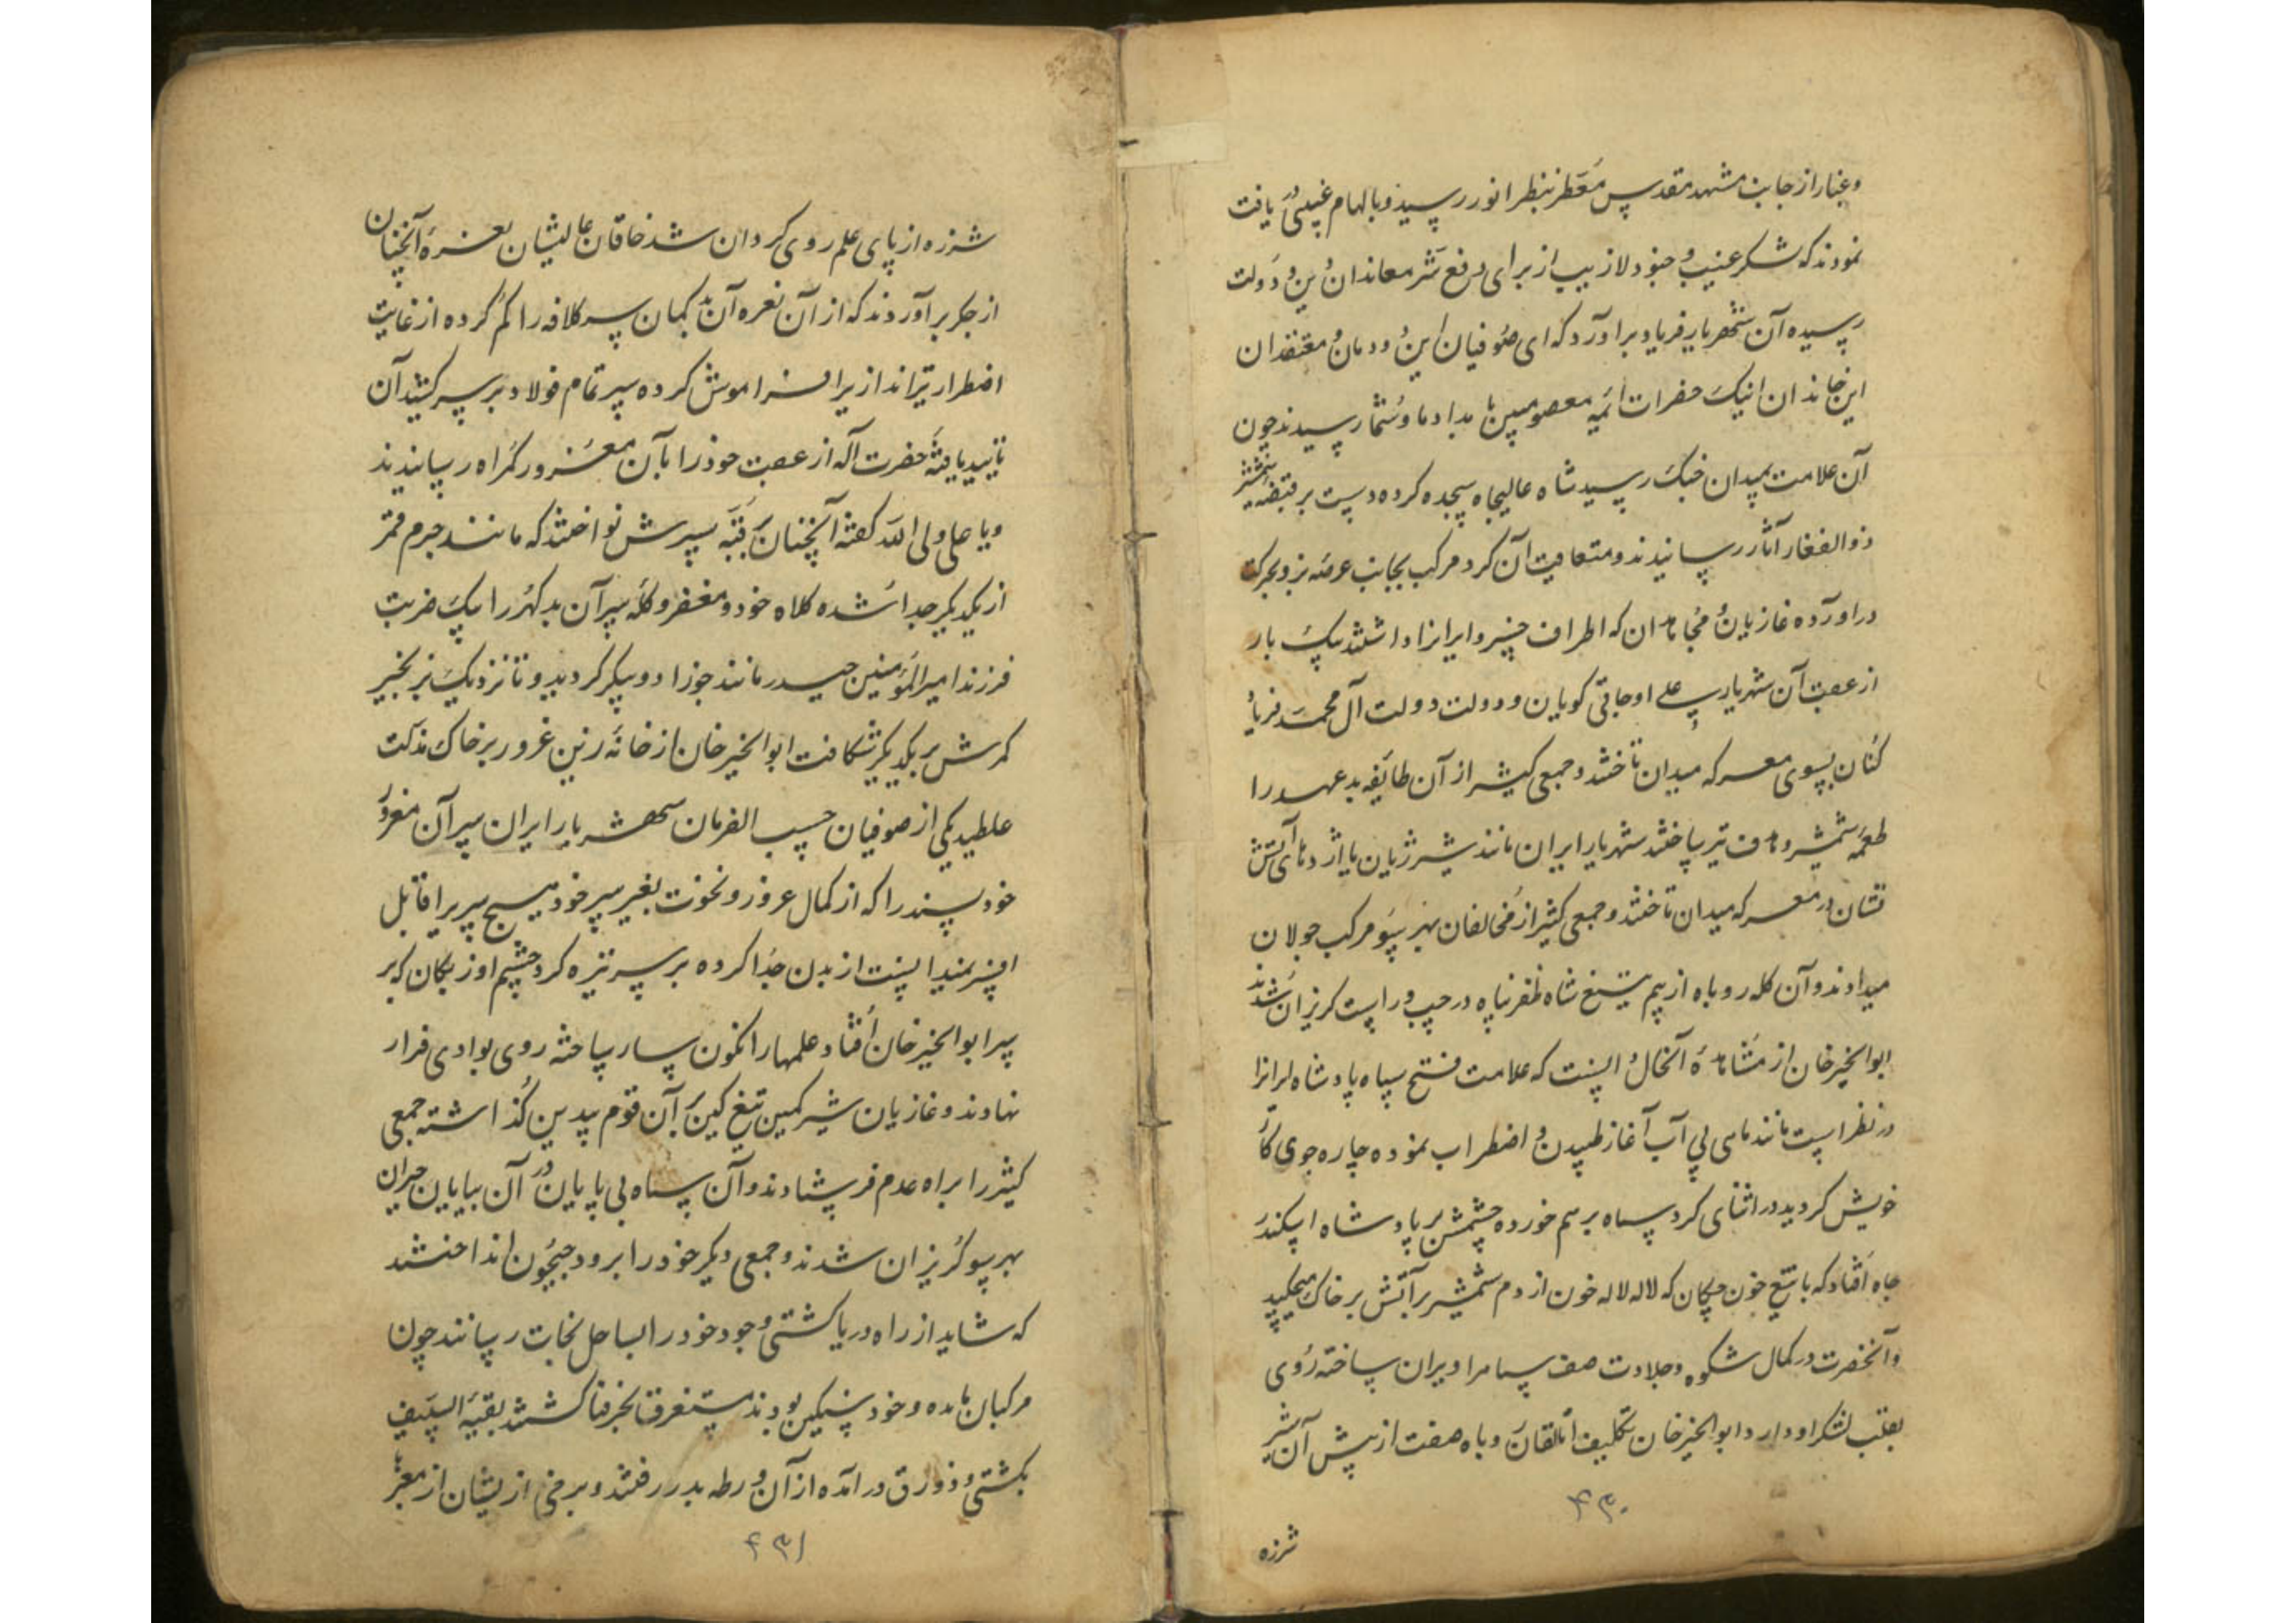 وغبار از جانب مشهد مقدس معطر بنظر انور رسید و بالهام غیبی در یافت
نمودند که لشکر غیب و جنود لاریب از برای دفع شر معاندان دین و دولت
رسیده آن شهریار فریاد براورد که ای صوفیان این دودمان و معتقدان
این خاندان اینک حضرات ائمه معصومین با مداد ما و شما رسیدند چون
آن علامت بمیدان جنک رسید شاه عالیجاه سجده کرده دست بر قبضه شمشیر
ذوالفقار آثار رسانیدند و متعاقب آن کرد مرکب بجانب عرصه نبرد بحرکت
دراورده غازیان و مجاهدان که اطراف خسرو ایرانرا داشتند یک بار
از عقب آن شهریار یا علی اوجاقی کویان و دولت دولت آل محمد فریاد
کنان بسوی معرکه میدان تاختند و جمعی کثیر از آن طایفه بد عهد را
طعمه شمشیر و هدف تیر ساختند شهریار ایران مانند شیر ژیان یا اژدهای آتش
فشان در معرکه میدان تاختند و جمعی کثیر از مخالفان بهر سو مرکب جولان
میدادند و آن کله روباه از بیم تیغ شاه ظفر پناه در چپ و راست کریزان شدند
ابوالخیرخان از مشاهده آنحال دانست که علامت فتح سپاه پادشاه ایرانرا
در نظر است مانند ماهی بی آب آغاز طپیدن و اضطراب نموده چاره جوی کار
خویش کردید در اثنای کرد سپاه برهم خورده چشمش بر پادشاه اسکندر
جاه افتاد که با تیغ خون چکان که لاله لاله خون از دم شمشیر برآتش بر خاک میچکید
و آنحضرت در کمال شکوه و جلادت صف سپاه را ویران ساخته روی
بقلب لشکر او دارد ابوالخیرخان تکلیف اتالقان روباه صفت از پیش آن شیر
شرزه
۴۳۰
شرزه از پای علم روی کردان شد خاقان عالیشان نعره آنچنان
از جکر برآوردند که از آن نعره آن بد کمان سر کلافه را کم کرده از غایت
اضطرار تیراندازیرا فراموش کرده سپر تمام فولاد بر سر کشید آن
تایید یافته حضرت اله از عقب خود را بآن مغرور کمراه رسانیدند
و یا علی ولی الله کفته آنچنان بر قبه سپرش نواختند که مانند جرم قمر
از یکدیکر جدا شده کلاه خود و مغفر و کله سر آن بد کهر را بیک ضربت
فرزند امیرالمؤمنین حیدر مانند جوزا دو پیکر کردید و تا نزدیک بزنجیر
کمرش بر یکدیکر شکافت ابوالخیرخان از خانه زین غرور بر خاک مذلت
غلطید یکی از صوفیان حسب الفرمان شهریار ایران سر آن مغرور
خود پسند را که از کمال غرور و نخوت بغیر سر خود هیچ سریرا قابل
افسر نمیدانست از بدن جدا کرده بر سر نیزه کرد چشم اوزبکان که بر
سر ابوالخیرخان افتاد علمها را نکون سار ساخته روی بوادی فرار
نهادند و غازیان شیر کمین تیغ کین بر آن قوم بیدین کذاشته جمعی
کثیر را براه عدم فرستادند و آن سپاه بی پایان در آن بیابان حیران
بهر سو کریزان شدند و جمعی دیکر خود را برود جیحون انداختند
که شاید از راه دریا کشتی وجود خود را بساحل نجات رسانند چون
مرکبان مانده و خود سنکین بودند مستغرق بحر فنا کشتند بقیة السیف
بکشتی و ذورق درآمده از آن ورطه بدر رفتند و برخی از یشان از معبر
۴۳۱